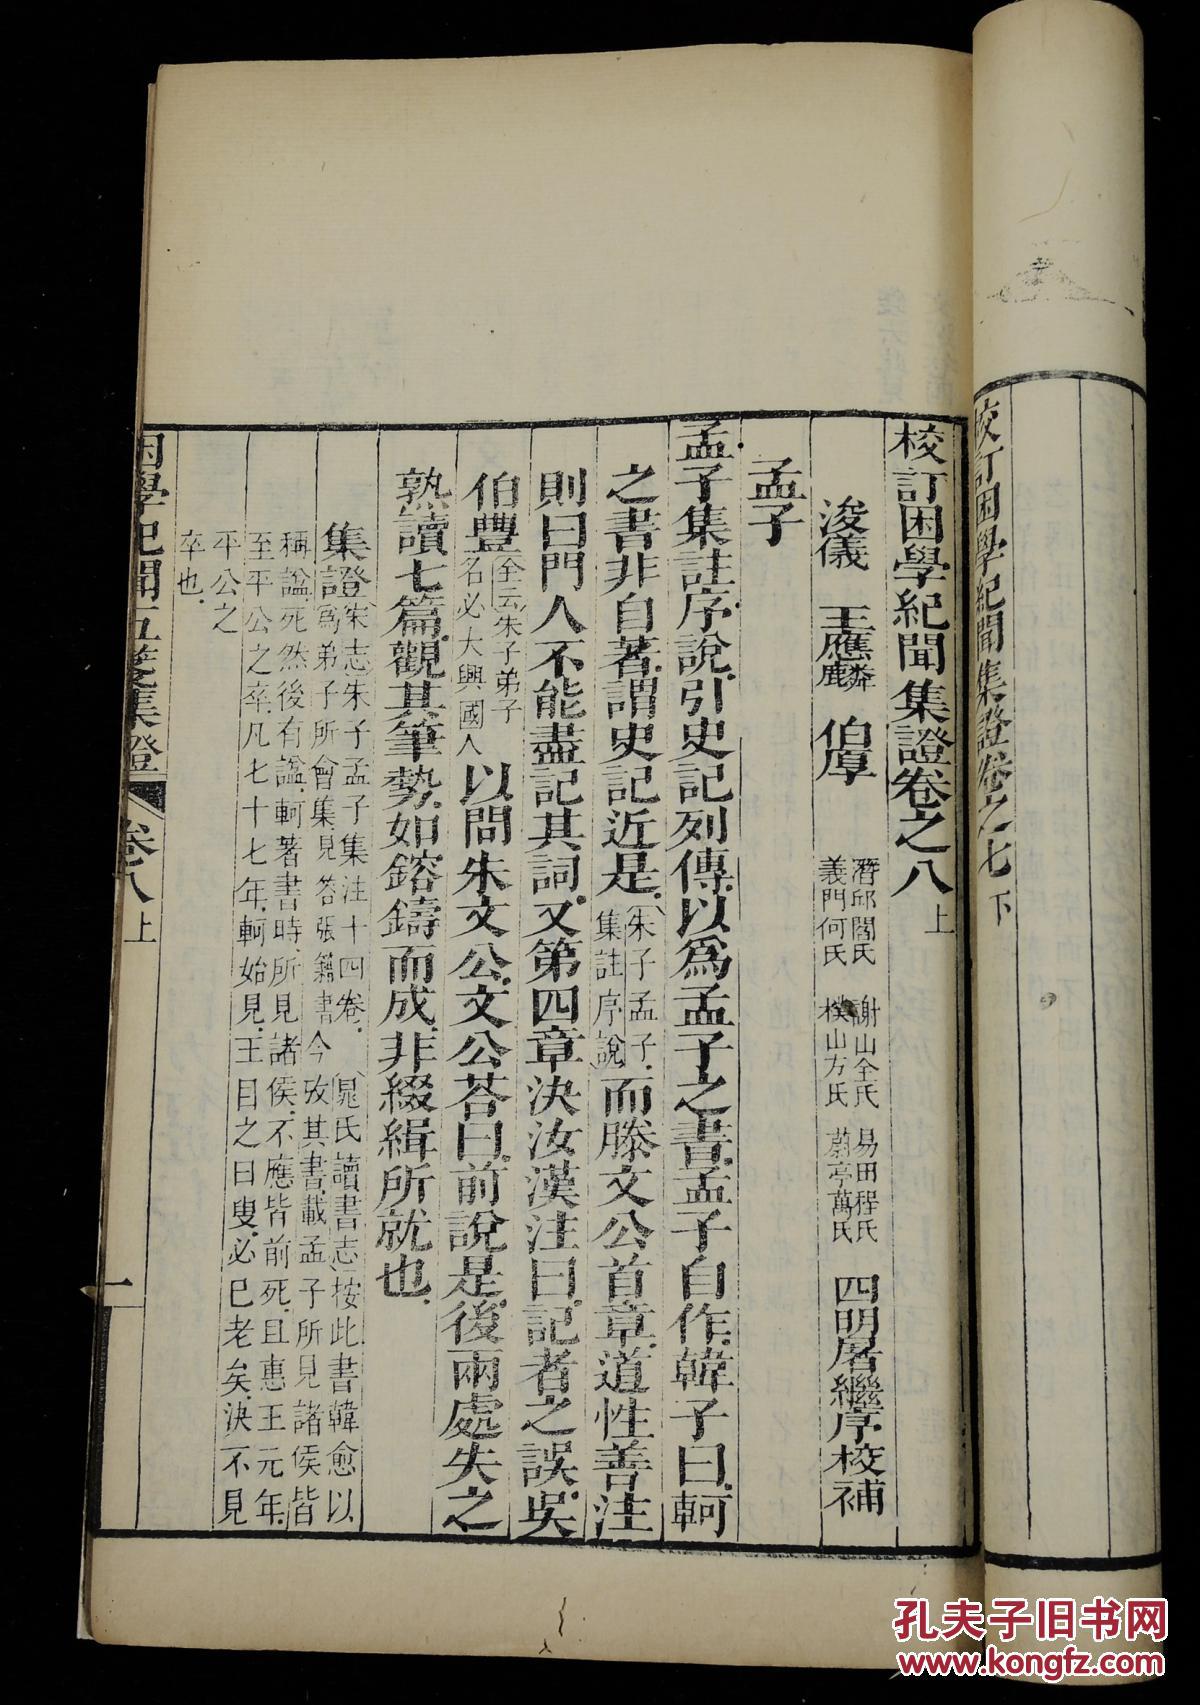 校訂困學紀聞集證卷之七下
校訂困學紀聞集證卷之八上
浚儀 王應麟 伯厚 潛邱閻氏 謝山全氏 易田程氏 義門何氏 樸山方氏 蔚亭萬氏 四明屠繼序校補
孟子
孟子集註序說引史記列傳以為孟子之書孟子自作韓子曰軻
之書非自著謂史記近是朱子孟子集註序說而滕文公首章道性善注
則曰門人不能盡記其詞又第四章決汝漢注曰記者之誤吳
伯豐全云朱子弟子名必大興國人以問朱文公文公荅曰前說是後兩處失之
熟讀七篇觀其筆勢如鎔鑄而成非綴緝所就也
集證宋志朱子孟子集注十四卷 晁氏讀書志按此書韓愈以
為弟子所會集見答張籍書今攷其書載孟子所見諸侯皆
稱諡死然後有諡軻著書時所見諸侯不應皆前死且惠王元年
至平公之卒凡七十七年軻始見王目之曰叟必已老矣決不見
平公之
卒也
困學紀聞五箋集證 卷八上 一
孔夫子旧书网
www.kongfz.com